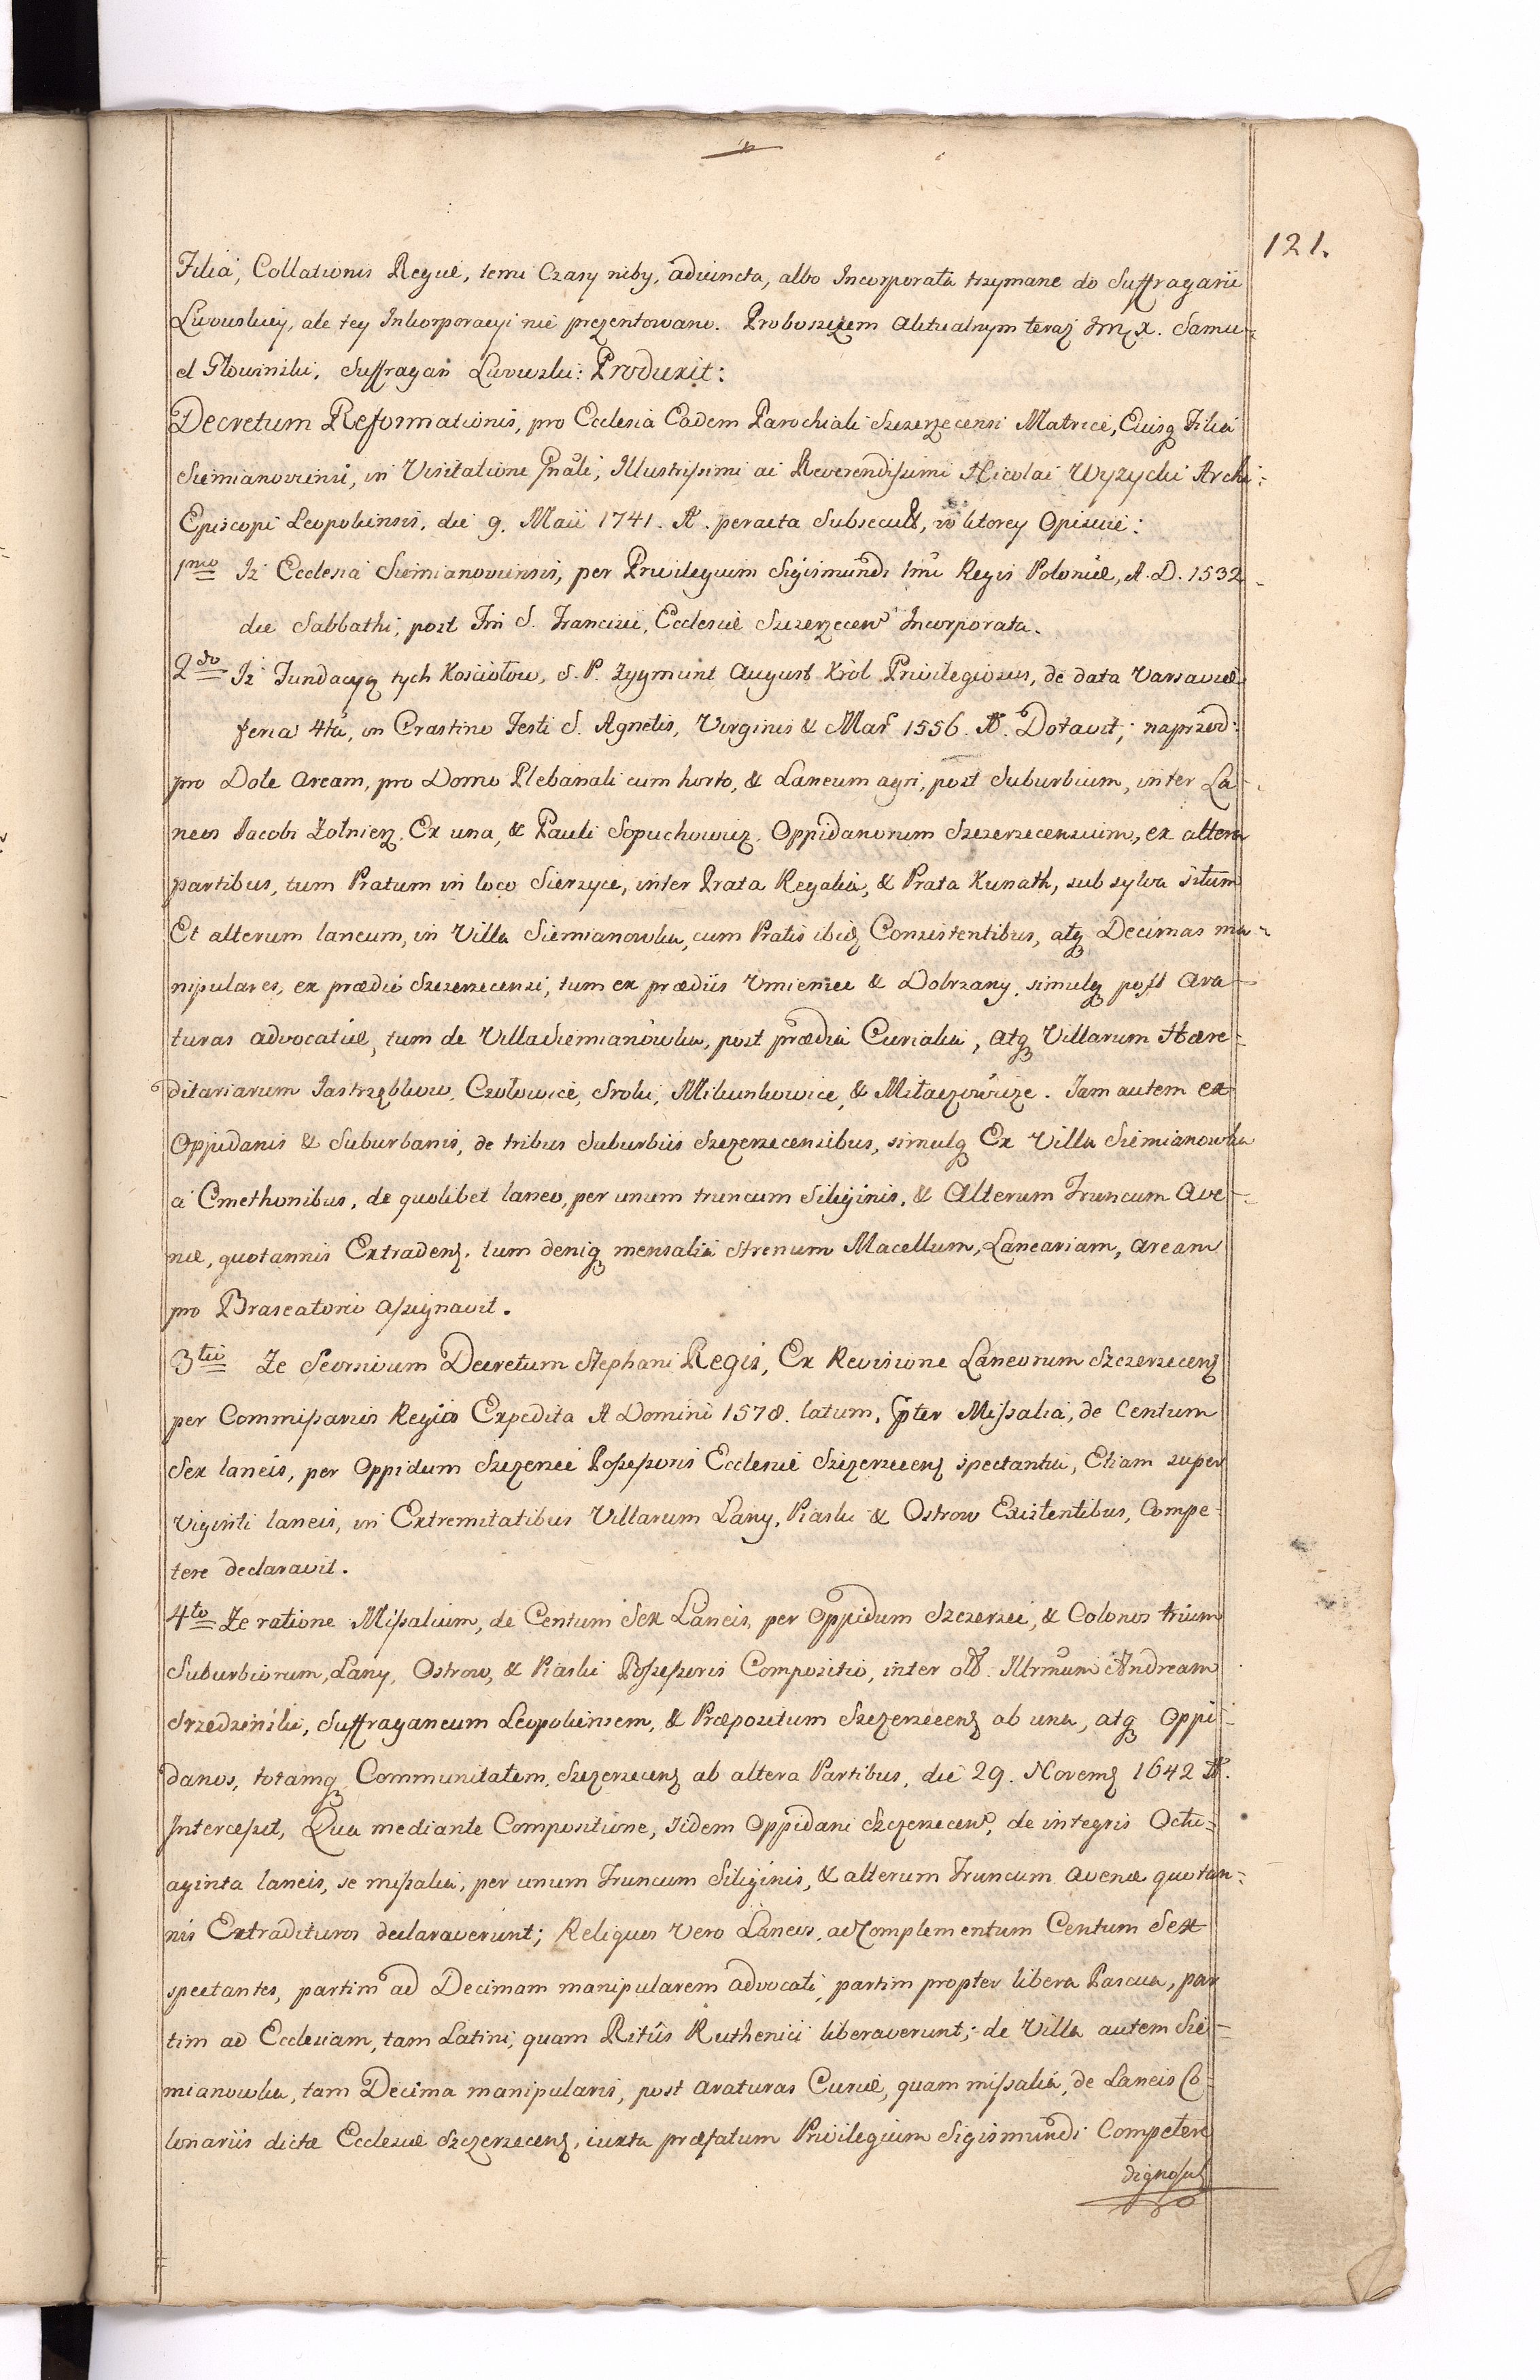 121.
Filia, Collationis Regiæ, temi Czasy niby, adiuncta, albo Incorporata trzymane do Suffraganii
Lwowskiey, ale tey Inkorporacyi nie prezentowano. Proboszczem Aktualnym teraz Jmx. Samu-
el Głowinski, Suffragan Lwowski: Produxit:
Decretum Reformationis, pro Ecclesia Eadem Parochiali Szczerzecensi Matrice, Eiusq Filia
Siemianoviensi, in Visitatione Gnali, Illustrissimi ac Reverendissimi Nicolai Wyzycki Archi-
Episcopi Leopoliensis, die 9. Maii 1741. A. peracta Subsecut, w ktorey Opiewie:
1mo Iż Ecclesia Siemianoviensis, per Privilegium Sigismundi 1mi Regis Poloniæ, A. D. 1532
die Sabbathi, post Fm S. Francisci, Ecclesiæ Szczerzecen Incorporata.
2do Iż Fundacyą tych Kosciołow, S. P. Zygmunt August Krol Privilegiosus, de data Varsaviæ
feria 4ta, in Crastino Festi S. Agnetis, Virginis & Mar 1556. A. Dotavit, naprzod:
pro Dote Aream, pro Domo Plebanali cum horto, & Laneum agri, post Suburbium, inter La-
neos Jacobi Zołnierz, Ex una, & Pauli Sopuchowicz, Oppidanorum Szczerzecensium, ex altera
partibus, tum Pratum in loco Sierzyce, inter Prata Regalia, & Prata Kunath, sub sylva situm
Et alterum laneum, in Villa Siemianowka, cum Pratis ibid Consistentibus, atq Decimas ma-
nipulares, ex prædio Szczerzecensi, tum ex prædiis Vmieniec & Dobrzany, simulq post Ara-
turas Advocatiæ, tum de Villa Siemianowka, post prædia Curialia, atq Villarum Hære-
ditariarum Jastrzębkow, Czołowice, Sroki, Mikunkowice, & Miłaczowicze. Jam autem ex
Oppidanis & Suburbanis, de tribus Suburbiis Szczerzecensibus, simulq Ex Villa Siemianowka
a Cmethonibus, de quolibet laneo, per unum truncum Siliginis, & Alterum Truncum Ave-
næ, quotannis Extradend. tum deniq mensalia strenum Macellum, Laneariam, Aream
pro Braseatorio assignavit.
3tio Że Seorsivum Decretum Stephani Regis, Ex Revisione Laneorum Szczerzecen
per Commissarios Regios Expedita A Domini 1578. latum, pter Missalia, de Centum
Sex laneis, per Oppidum Szczerzec Possessoris Ecclesiæ Szczerzecen spectantia, Etiam super
Viginti laneis, in Extremitatibus Villarum Lany, Piaski & Ostrow Existentibus, Compe-
tere declaravit.
4to Że ratione Missalium, de Centum Sex Laneis, per Oppidum Szczerzec, & Colonos trium
Suburbiorum, Lany, Ostrow, & Piaski Possessoris Compositio, inter olt. Illrmum Andream
Srzedzinski, Suffraganeum Leopoliensem, & Præpositum Szczerzecen ab una, atq Oppi-
danos, totamq Communitatem Szczerzecen ab altera Partibus, die 29. Novem 1642 A.
Intercessit, Qua mediante Compositione, Iidem Oppidani Szczerzecen, de integris Octu-
aginta laneis, se missalia, per unum Truncum Siliginis, & alterum Truncum avenæ quotan-
nis Extradituros declaraverunt; Reliquos Vero Laneos, ad Complementum Centum Sex
spectantes, partim ad Decimam manipularem advocati, partim propter libera Pascua, par
tim ad Ecclesiam, tam Latini, quam Ritûs Ruthenici liberaverunt; de Villa autem Sie-
mianowka, tam Decima manipularis, post Araturas Curiæ, quam missalia, de Laneis Co-
lonariis dictæ Ecclesiæ Szczerzecen, iuxta præfatum Privilegium Sigismundi Competere